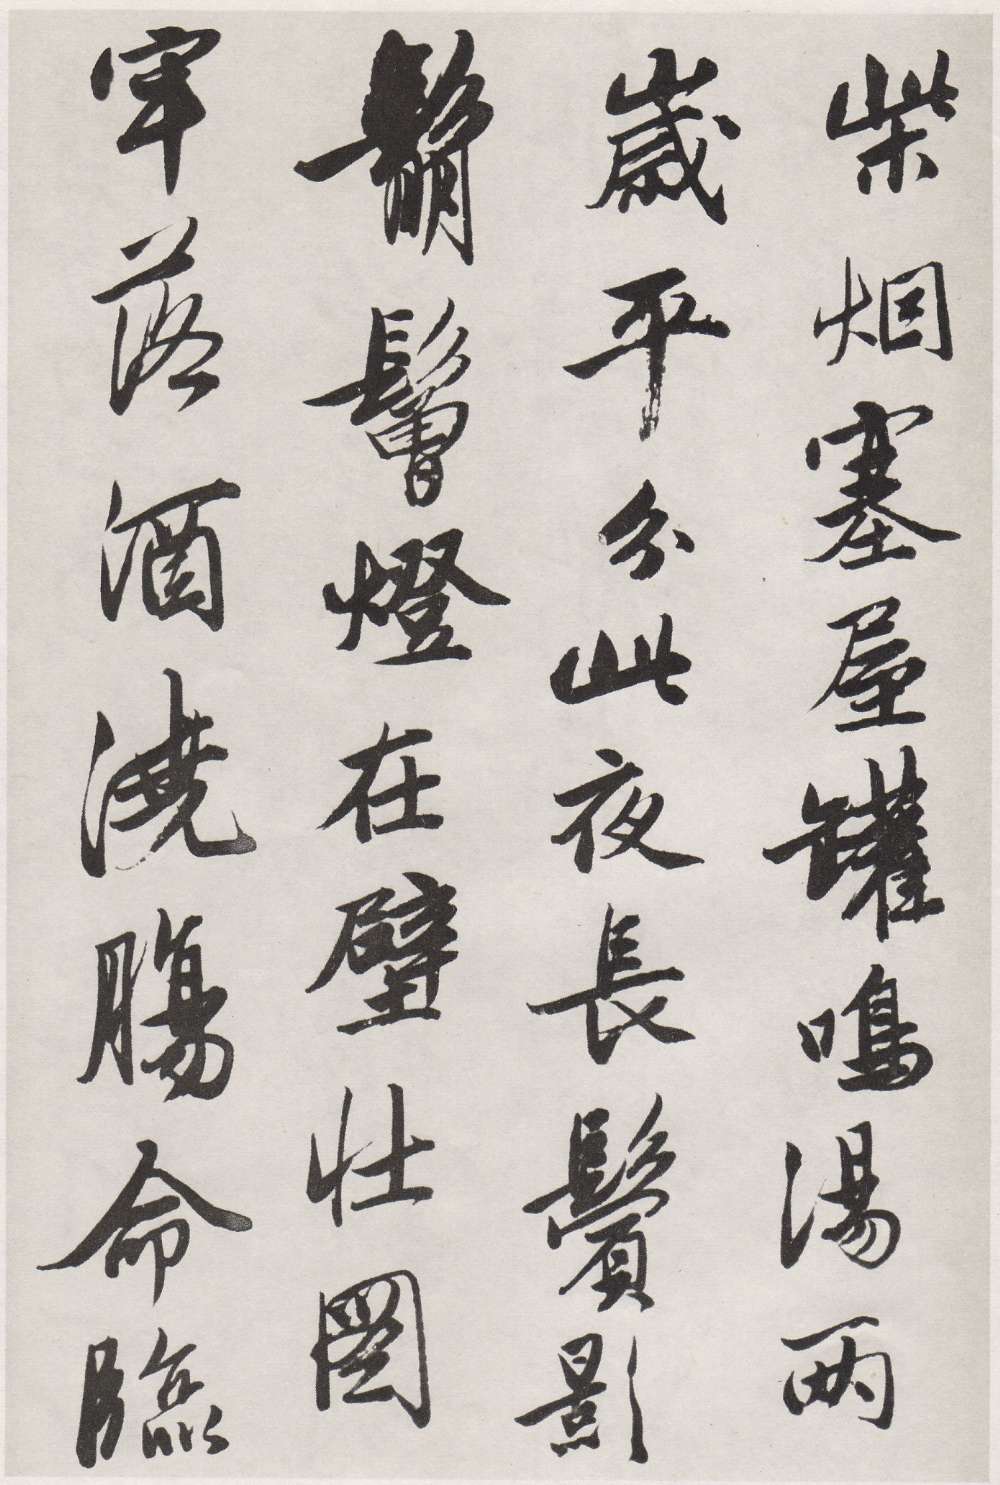 柴烟塞屋罐鳴湯兩
歲平分此夜長鬢影
鬅鬠燈在壁壯圖
牢落酒澆腸命臨